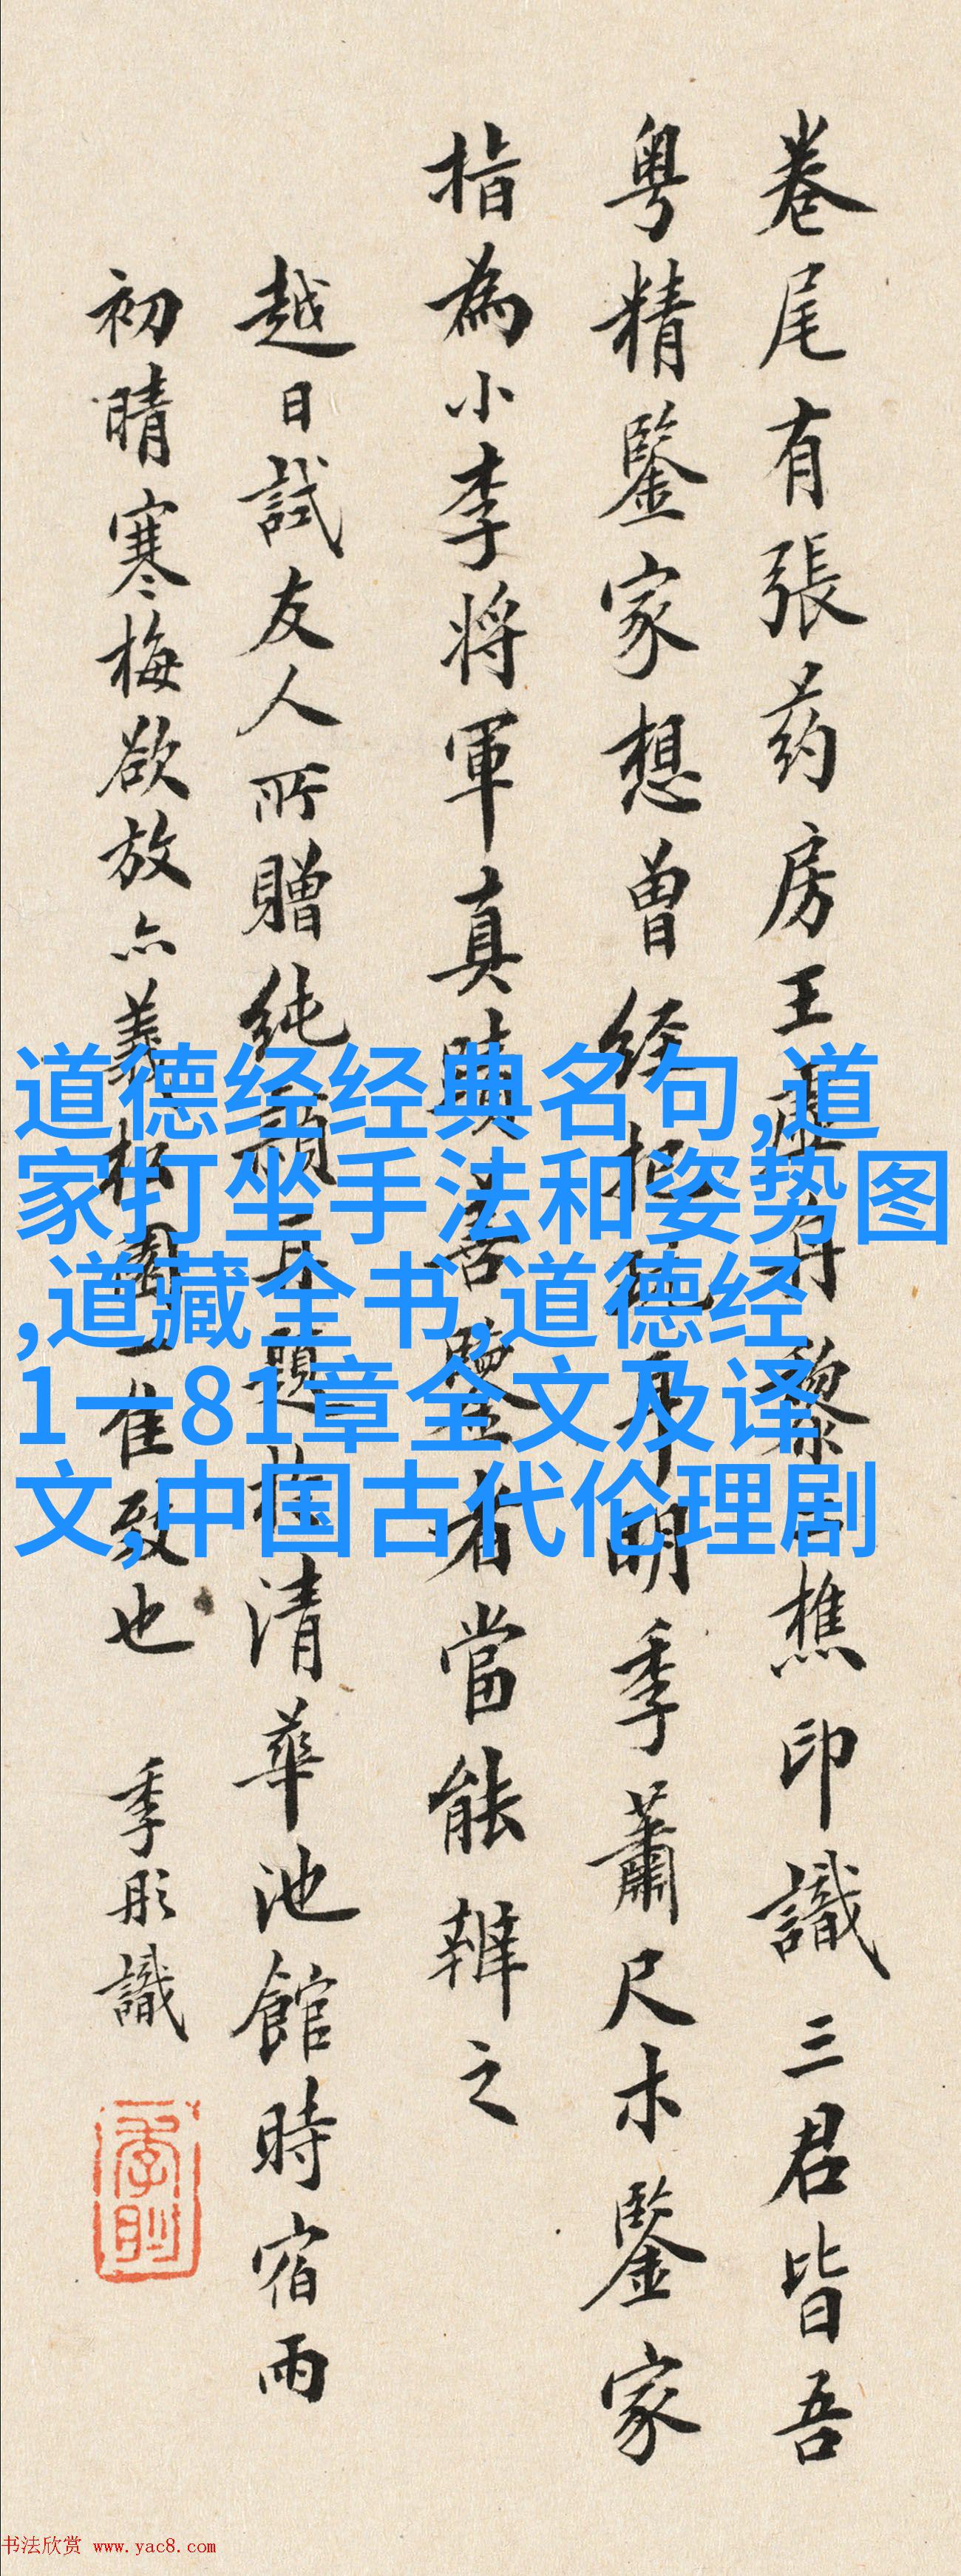 卷尾有張药房王
樵印識三君皆吾
粤精鑒家想曾經
明季蕭尺木鑒家
指為小李將軍真
鑒者當能辨之
越日試友人所贈純
題
清華池館時宿雨
初晴寒梅欲放亦
隹致也
季彤識
道德经经典名句,道
家打坐手法和姿势图
,道藏全书,道德经
1一81章全文及译
文,中国古代伦理剧
书法欣赏 www.yac8.com